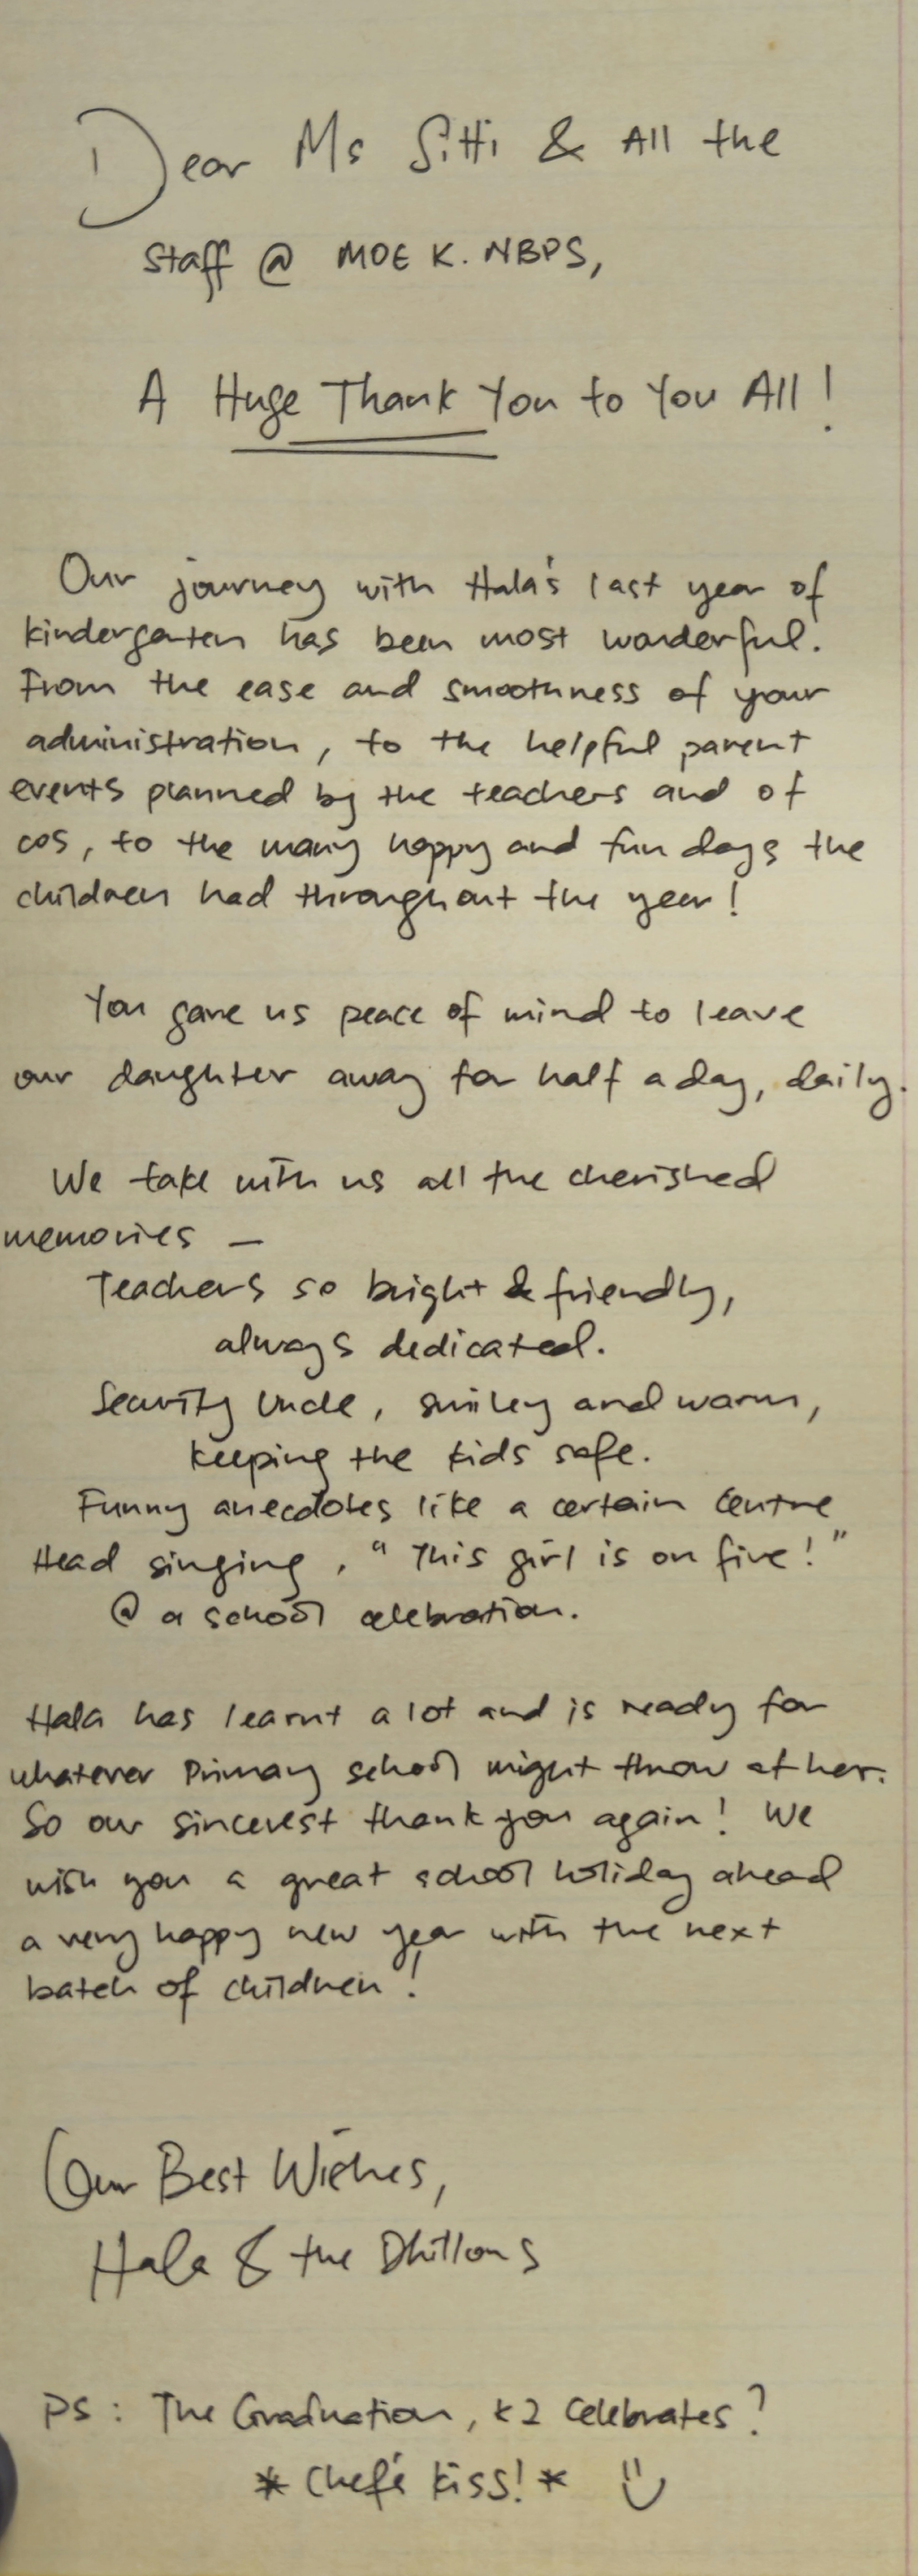 Dear Ms Sitti & All the
Staff @ MOE K. NBPS,
A Huge Thank You to You All!
Our journey with Hala's last year of
kindergarten has been most wonderful.
From the ease and smoothness of your
administration, to the helpful parent
events planned by the teachers and of
cos, to the many happy and fun days the
children had throughout the year!
You gave us peace of mind to leave
our daughter away for half a day, daily.
We take with us all the cherished
memories —
Teachers so bright & friendly,
always dedicated.
Security Uncle, smiley and warm,
keeping the kids safe.
Funny anecdotes like a certain Centre
Head singing, "This girl is on fire!"
@ a school celebration.
Hala has learnt a lot and is ready for
whatever Primary school might throw at her.
So our sincerest thank you again! We
wish you a great school holiday ahead
a very happy new year with the next
batch of children!
Our Best Wishes,
Hala & the Dhillons
PS: The Graduation, K2 Celebrates?
* Chef's Kiss! * :)